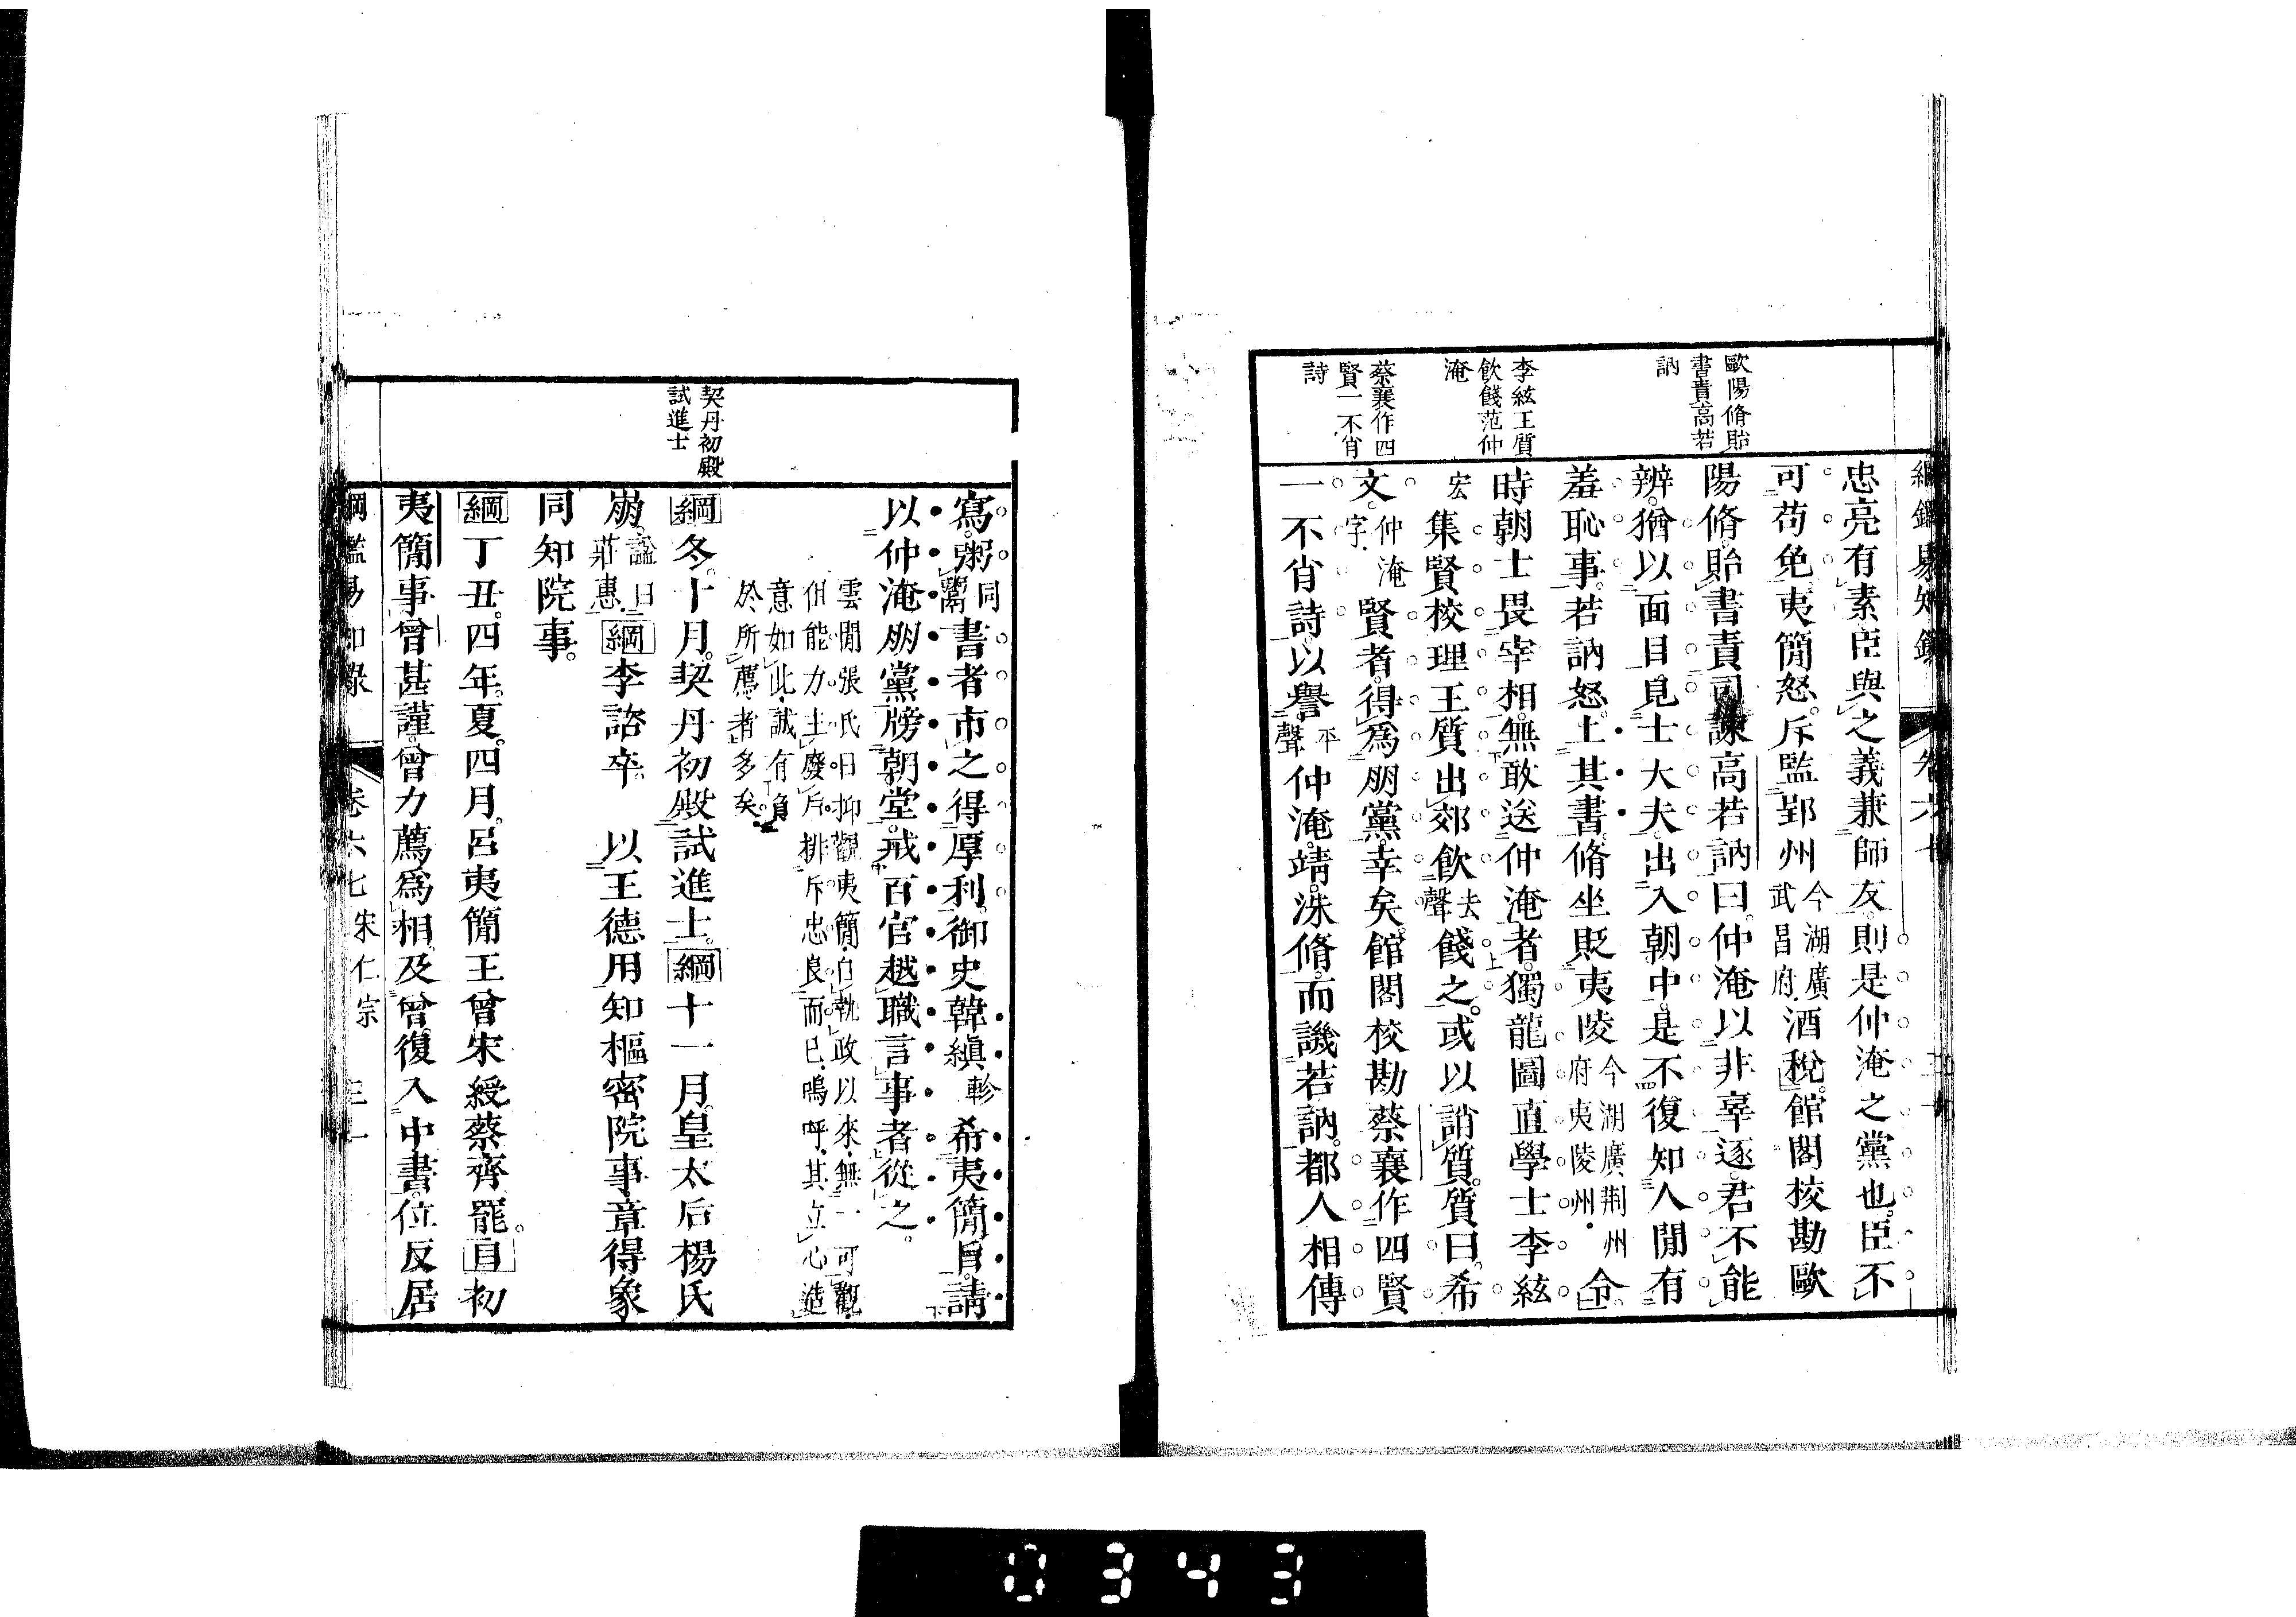 綱鑑易知錄　卷六七
歐陽脩貽
書責高若
訥
李紘王質
飲餞范仲
淹
蔡襄作四
賢一不肖
詩
忠亮有素臣與之義兼師友。則是仲淹之黨也。臣不
可苟免。夷簡怒。斥監郢州今湖廣武昌府。酒稅。館閣校勘歐
陽脩。貽書責司諫高若訥曰。仲淹以非辜逐。君不能
辨。猶以面目見士大夫。出入朝中。是不復知人閒有
羞恥事。若訥怒。上其書。脩坐貶夷陵今湖廣荆州府夷陵州。令。
時朝士畏宰相。無敢送仲淹者。獨龍圖直學士李紘
宏集賢校理王質出郊飲去聲餞之。或以誚質。質曰。希
文。仲淹字。賢者。得爲朋黨。幸矣。館閣校勘蔡襄作四賢
一不肖詩。以譽。平聲仲淹。靖。洙。脩。而譏若訥。都人相傳
契丹初殿
試進士
寫。粥同鬻書者市之得厚利。御史韓縝。軫希夷簡旨。請
以仲淹朋黨牓朝堂。戒百官越職言事者。從之。
雲閒張氏曰。抑觀夷簡。自執政以來。無一可觀。
但能力主廢斥。排斥忠良而已。嗚呼。其立心造
意如此。誠有負
於所薦者多矣。
綱冬。十月。契丹初殿試進士。綱十一月。皇太后楊氏
崩。諡曰莊惠。綱李諮卒　以王德用知樞密院事。章得象
同知院事。
綱丁丑。四年。夏。四月。呂夷簡王曾宋綬蔡齊罷。目初
夷簡事曾甚謹。曾力薦爲相。及曾復入中書。位反居
綱鑑易知錄　卷六七宋仁宗